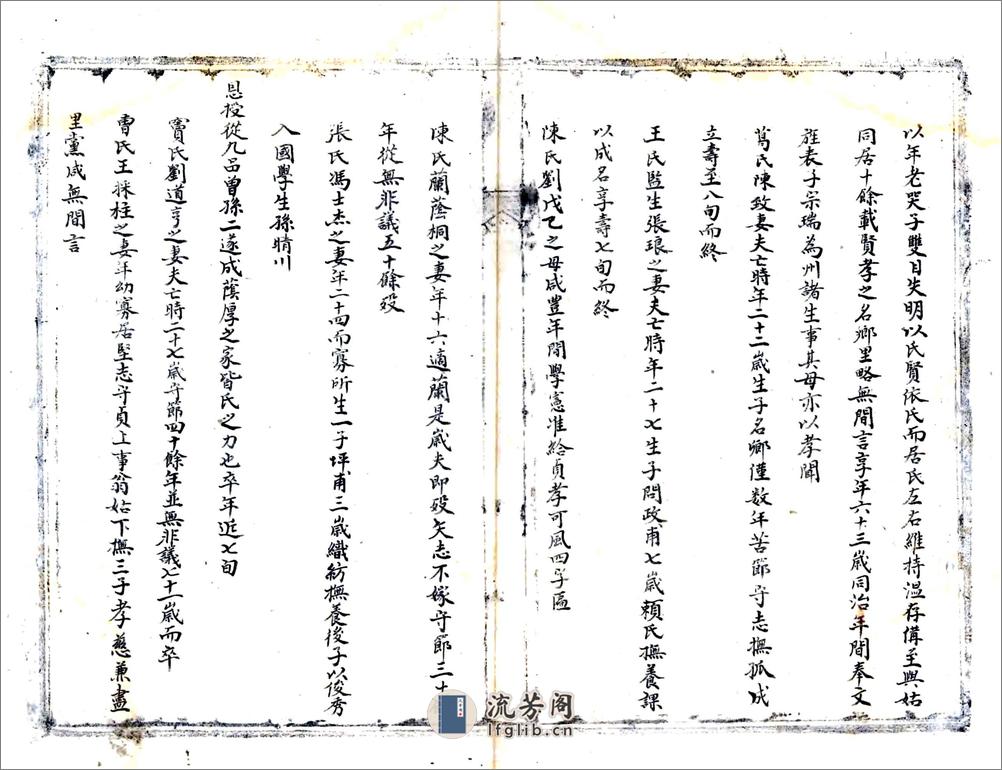 以年老哭子雙目失明以氏賢依氏而居氏左右維持溫存備至與姑
同居十餘載賢孝之名鄉里略無間言享年六十三歲同治年間奉文
旌表子宗瑞為州諸生事其母亦以孝聞
葛氏陳致妻夫亡時年二十二歲生子名鄉僅数年苦節守志撫孤成
立壽至八旬而終
王氏監生張琅之妻夫亡時年二十七生子問政甫七歲賴氏撫養課
以成名享壽七旬而終
陳氏劉戊乙之母咸豊年間學憲准給貞孝可風四字匾
陳氏蘭蔭桐之妻年十六適蘭是歲夫即殁矢志不嫁守節三十
年從無非議五十餘殁
張氏馮士杰之妻年二十四而寡所生一子坪甫三歲織紡撫養後子以俊秀
入國學生孫晴川
恩授從九品曾孫二遂成蔭厚之家皆氏之力也卒年近七旬
竇氏劉道亨之妻夫亡時二十七歲守節四十餘年並無非議七十一歲而卒
曹氏王採柱之妻年幼寡居堅志守貞上事翁姑下撫三子孝慈兼盡
里黨咸無間言
流芳阁
lfglib.cn